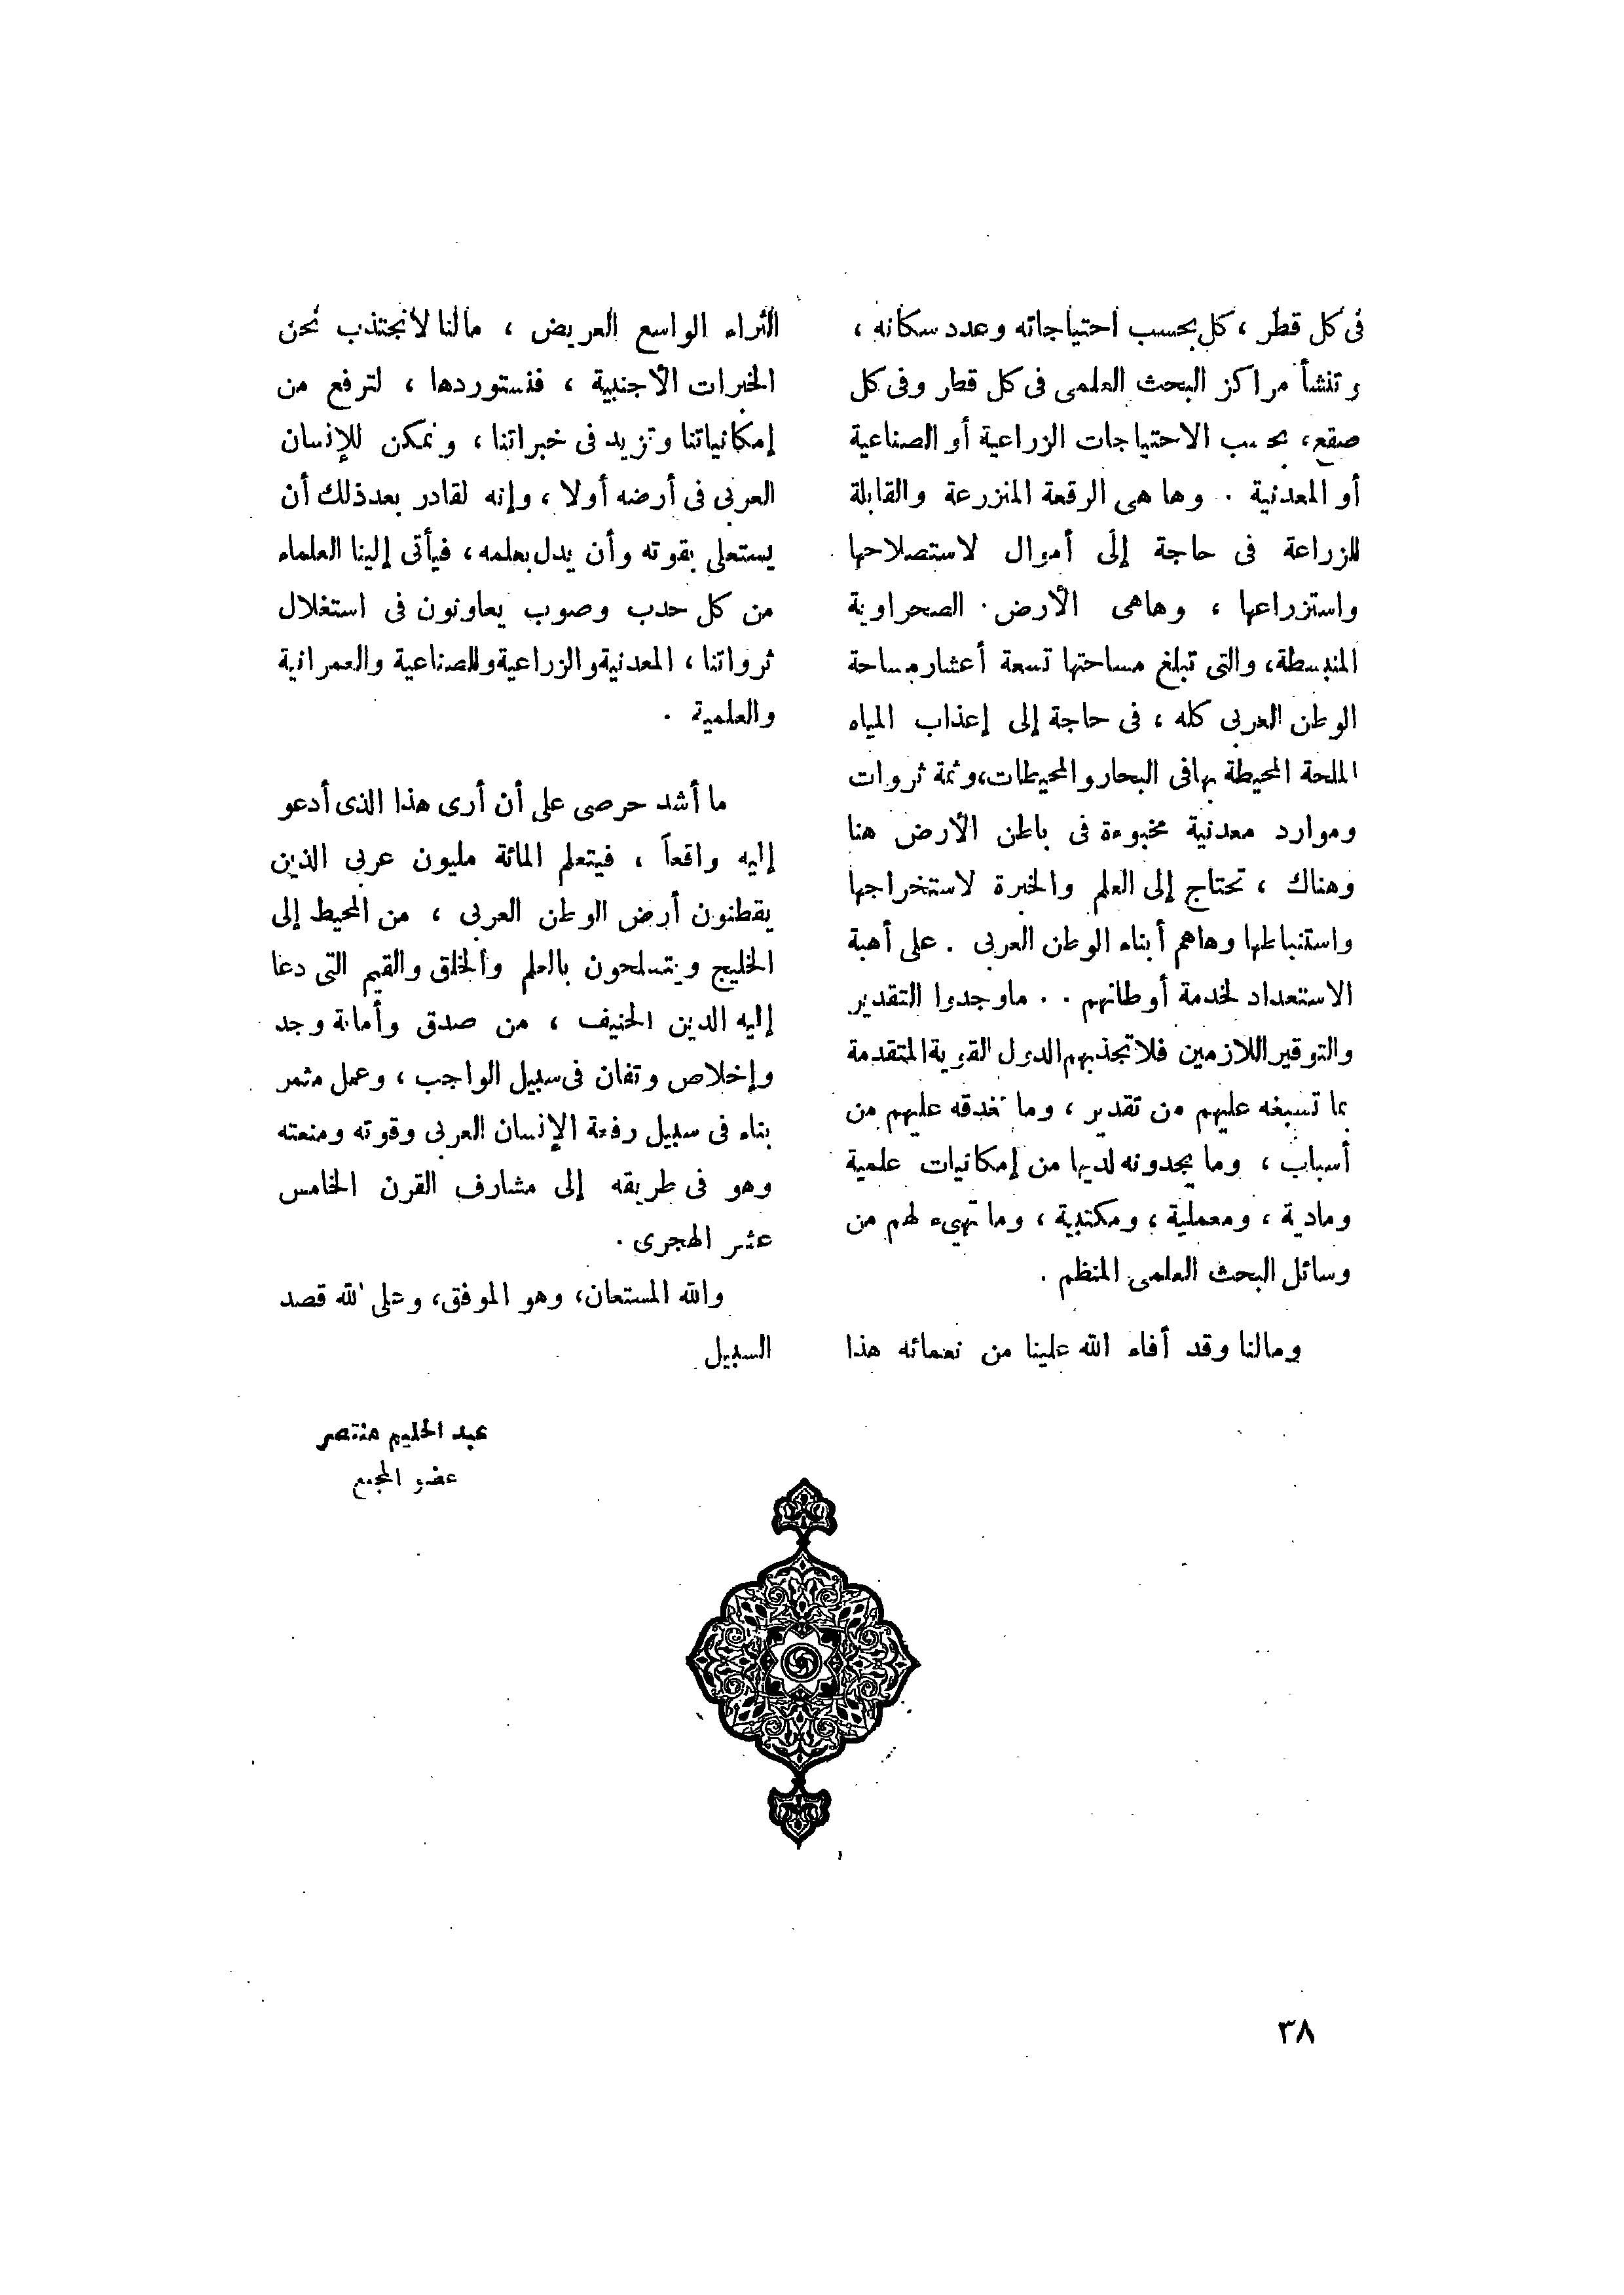 فى كل قطر ، كل بحسب احتياجاته وعدد سكانه ،
وتنشأ مراكز البحث العلمى فى كل قطر وفى كل
صقع، بحسب الاحتياجات الزراعية أو الصناعية
أو المعدنية . وها هى الرقعة المنزرعة والقابلة
للزراعة فى حاجة إلى أموال لاستصلاحها
واستزراعها ، وهاهى الأرض الصحراوية
المنبسطة، والتى تبلغ مساحتها تسعة أعشار مساحة
الوطن العربى كله ، فى حاجة إلى إعذاب المياه
الملحة المحيطة بهافى البحار والمحيطات، وثمة ثروات
وموارد معدنية مخبوءة فى باطن الأرض هنا
وهناك ، تحتاج إلى العلم والخبرة لاستخراجها
واستنباطها وهاهم أبناء الوطن العربى . على أهبة
الاستعداد لخدمة أوطانهم . . ماوجدوا التقدير
والتوقير اللازمين فلاتجذبهم الدول القوية المتقدمة
بما تسبغه عليهم من تقدير ، وما تغدقه عليهم من
أسباب ، وما يجدونه لديها من إمكانيات علمية
ومادية ، ومعملية ، ومكتبية ، وما تهيىء لهم من
وسائل البحث العلمى المنظم .
ومالنا وقد أفاء الله علينا من نعمائه هذا
الثراء الواسع العريض ، مالنا لانجتذب نحن
الخبرات الأجنبية ، فنستوردها ، لترفع من
إمكانياتنا وتزيد فى خبراتنا ، ونمكن للإنسان
العربى فى أرضه أولا ، وإنه لقادر بعدذلك أن
يستعلى بقوته وأن يدل بعلمه ، فيأتى إلينا العلماء
من كل حدب وصوب يعاونون فى استغلال
ثرواتنا ، المعدنية والزراعية وللصناعية والعمرانية
والعلمية .
ما أشد حرصى على أن أرى هذا الذى أدعو
إليه واقعاً ، فيتعلم المائة مليون عربى الذين
يقطنون أرض الوطن العربى ، من المحيط إلى
الخليج ويتسلحون بالعلم والخلق والقيم التى دعا
إليه الدين الحنيف ، من صدق وأمانة وجد
وإخلاص وتفان فى سبيل الواجب ، وعمل مثمر
بناء فى سبيل رفعة الإنسان العربى وقوته ومنعته
وهو فى طريقه إلى مشارف القرن الخامس
عشر الهجرى .
والله المستعان، وهو الموفق، وعلى الله قصد
السبيل
عبد الحليم منتصر
عضو المجمع
٣٨